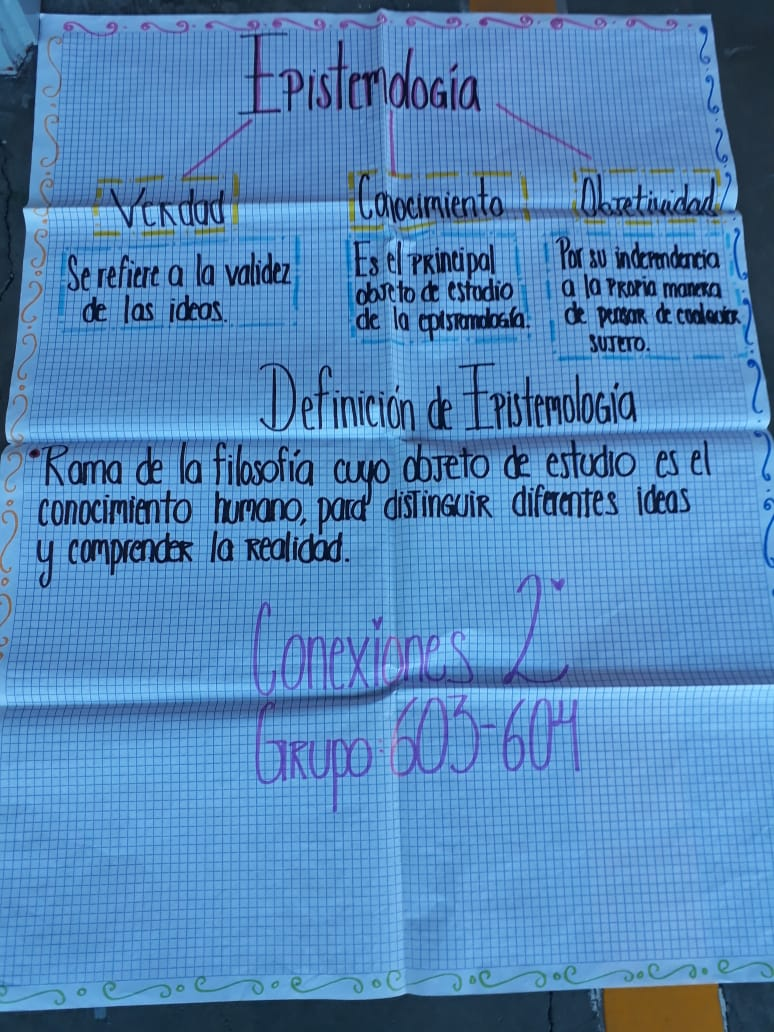 Epistemología
Verdad
Conocimiento
Objetividad
Se refiere a la validez
de las ideas.
Es el principal
objeto de estudio
de la epistemología.
Por su independencia
a la propia manera
de pensar de cualquier
sujeto.
Definición de Epistemología
• Rama de la filosofía cuyo objeto de estudio es el
conocimiento humano, para distinguir diferentes ideas
y comprender la realidad.
Conexiones 2
Grupo: 603-604